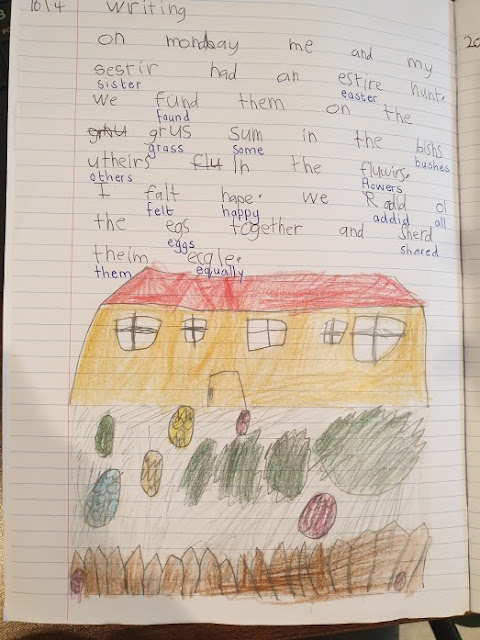 16/4 writing
on monday me and my
sestir had an estire hunt.
sister easter
we fund them on the
found
grhu grus sum in the bishs
grass some bushes
utheirs flu In the flywirs.
others flowers
I falt hape. we Radd ol
felt happy addid all
the egs together and sherd
eggs shared
theim ecqle.
them equally